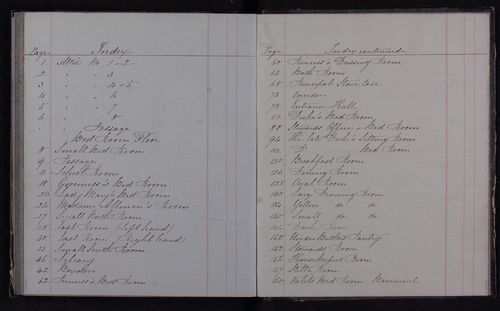 Page Index
1 Attic No 1-2
2 " " 3
3 " " 4-5
4 " " 6
5 " " 7
6 " " 8
" Passage
Bed Room Floor
8 Small Bed Room
9 Passage
11 School Room
18 Governess's Bed Room
20 Lady Mary's Bed Room
24 Madam Room
27 Small North Room
28 East Room (Left hand)
30 East Room (Right hand)
33 Small South Room
36 Library
42 Boudoir
52 Bed Room
Page Index continued
60 Dressing Room
63 Bath Room
68 Principal Stair Case
73 Corridor
78 Entrance Hall
82 Duke's Bed Room
88 Stewards Office & Bed Room
94 The late Duke's Sitting Room
112 Do Bed Room
120 Breakfast Room
126 Dining Room
128 Oval Room
130 Large Drawing Room
134 Yellow do do
145 Small do do
146 Room
150 Under Butler's Pantry
152 Stewards Room
156 Housekeepers Room
157 Still Room
160 Valets Bed Room Basement